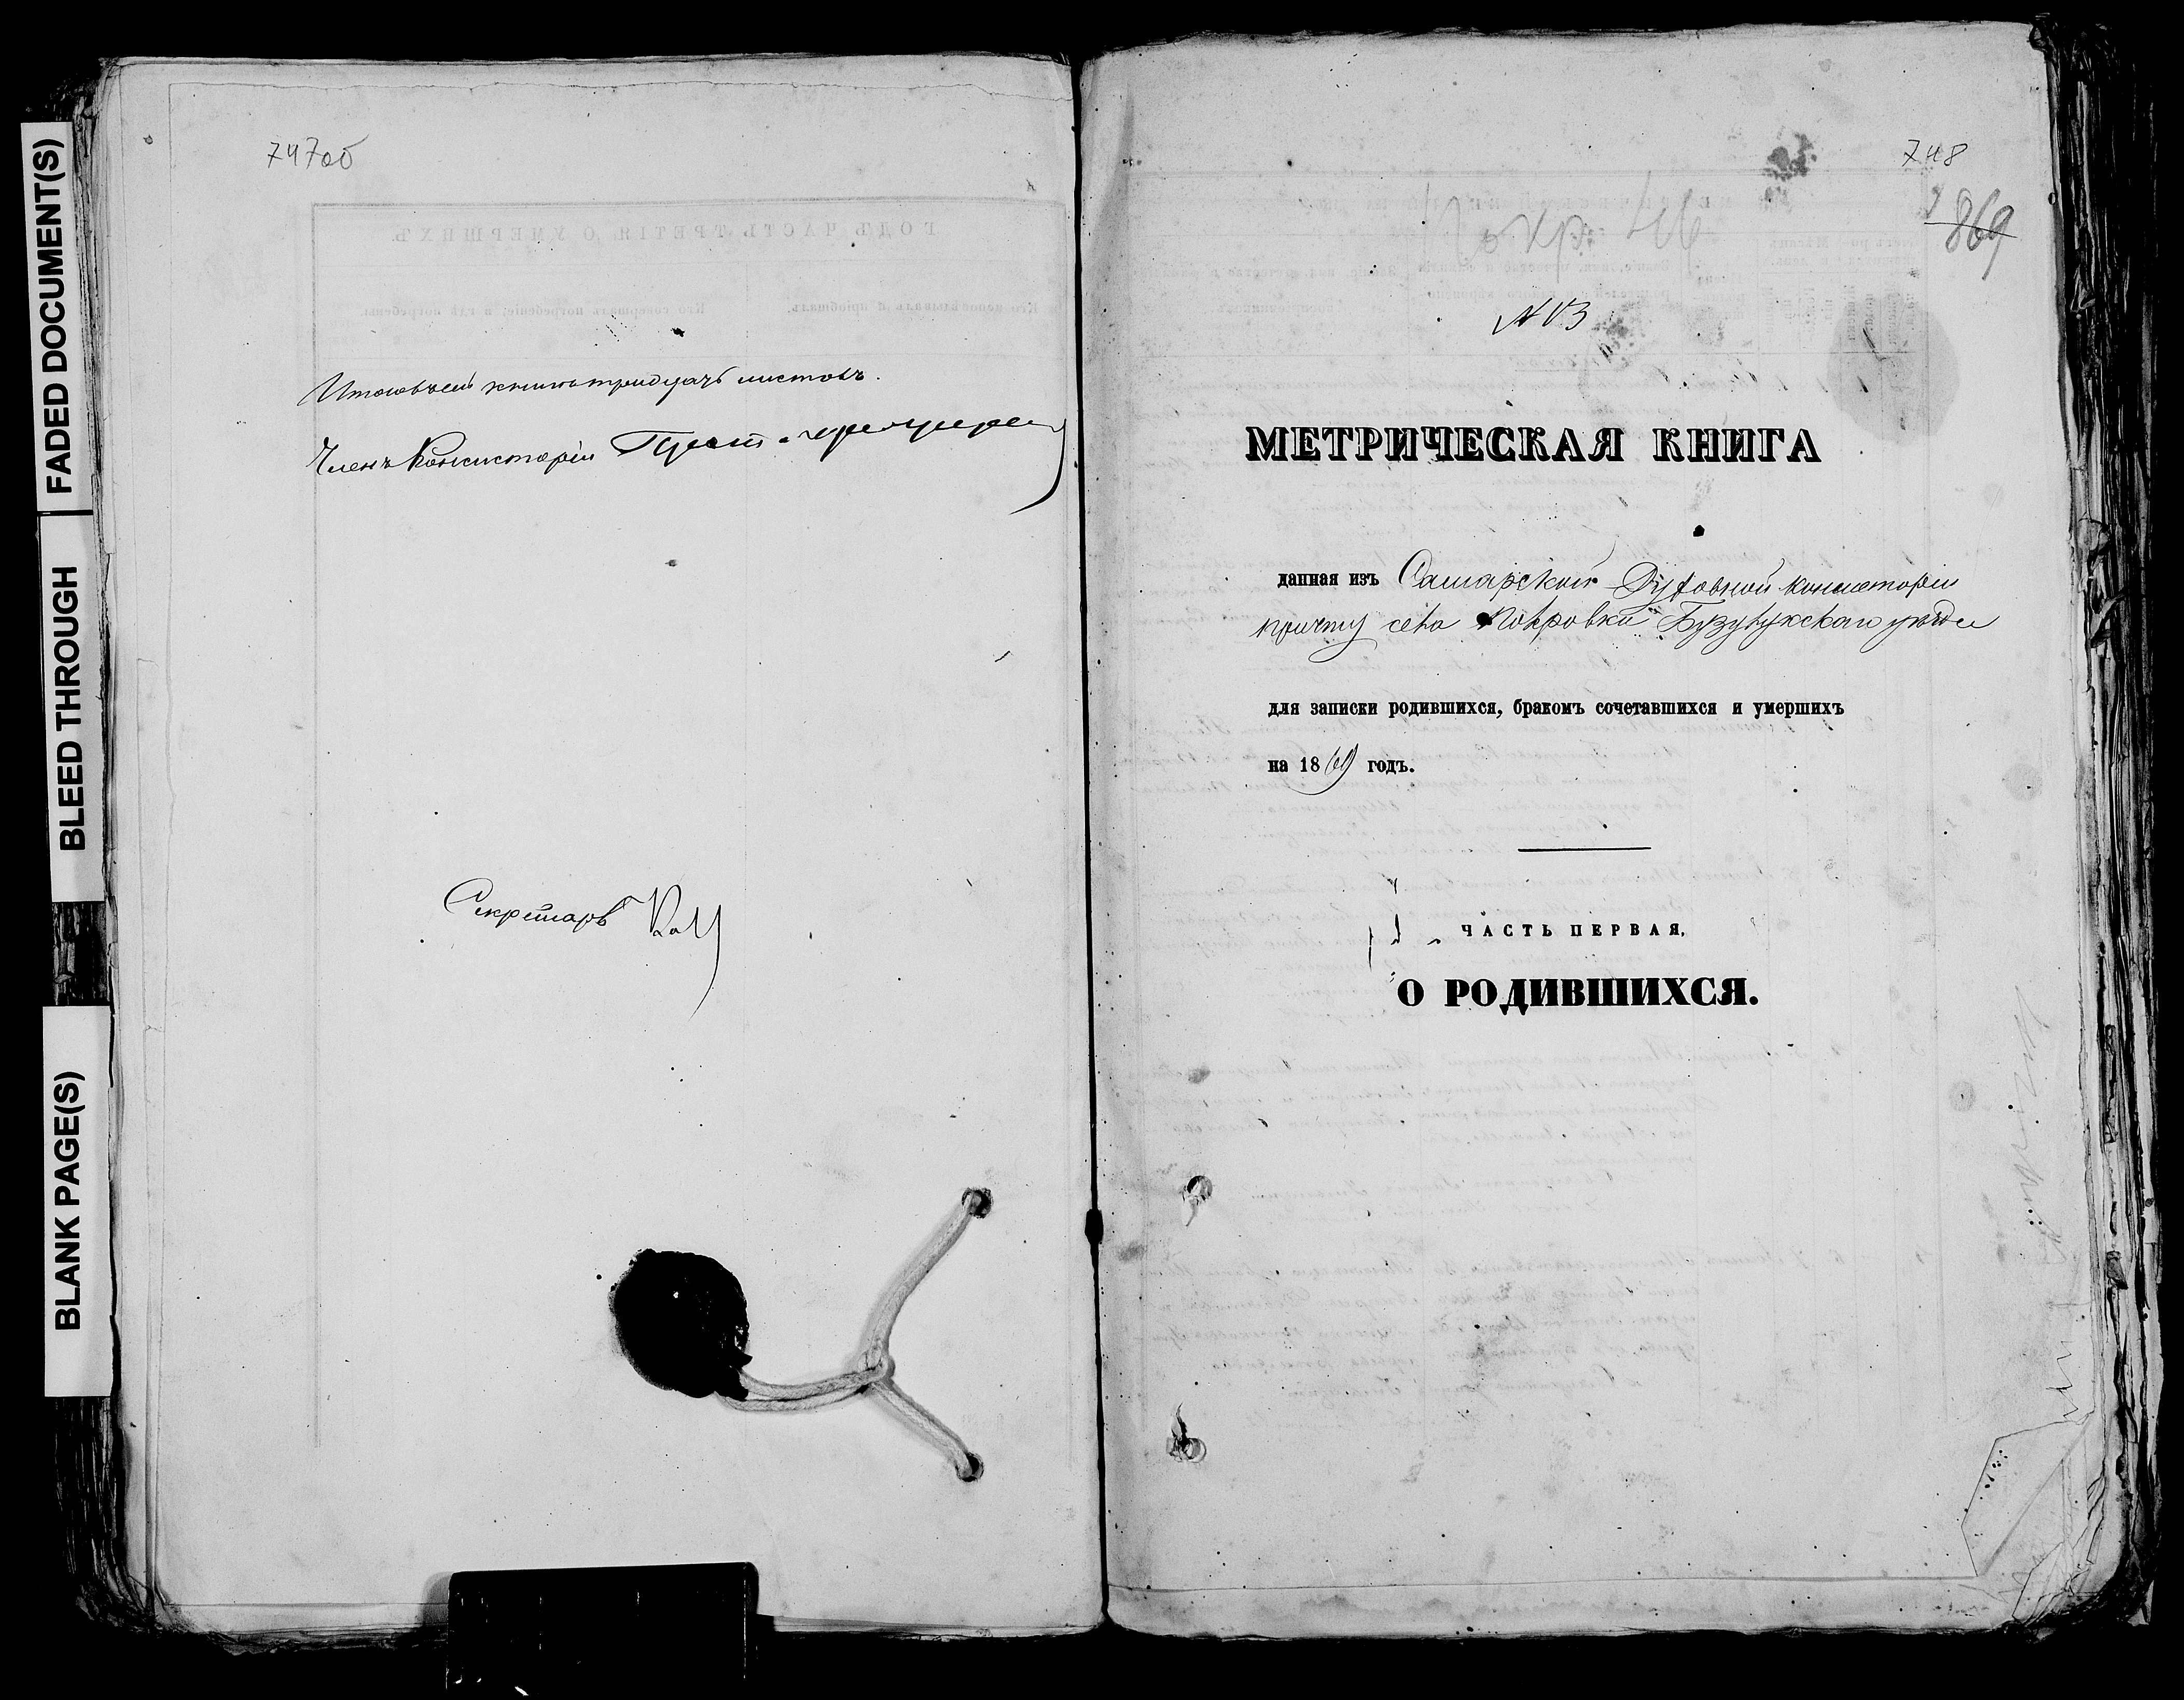 FADED DOCUMENT(S)
BLEED THROUGH
BLANK PAGE(S)
747об
Итого въ сей книге тридцать листовъ.
Членъ Консисторіи
Секретарь
748
869
МЕТРИЧЕСКАЯ КНИГА
данная изъ Самарской Духовной консисторіи
причту села Покровки Бузулукскаго уѣзда
для записки родившихся, бракомъ сочетавшихся и умершихъ
на 1869 годъ.
ЧАСТЬ ПЕРВАЯ,
О РОДИВШИХСЯ.